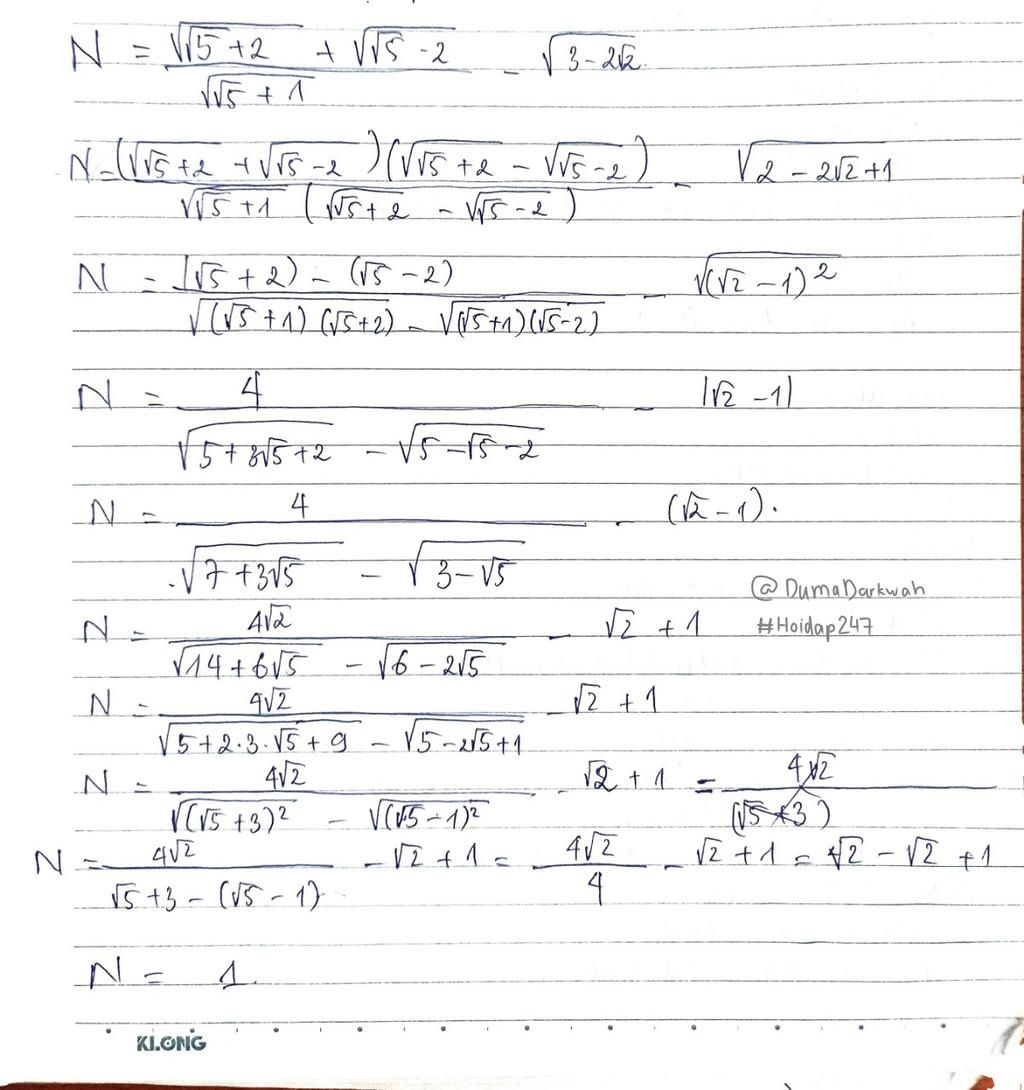 N = (√(√5+2) + √(√5-2))/√(√5+1) - √(3-2√2).
N = (√(√5+2) + √(√5-2))(√(√5+2) - √(√5-2))/(√(√5+1) (√(√5+2) - √(√5-2))) - √(2-2√2+1)
N = ((√5+2) - (√5-2))/(√((√5+1)(√5+2)) - √((√5+1)(√5-2))) - √((√2-1)²)
N = 4/(√(5+3√5+2) - √(5-√5-2)) - |√2-1|
N = 4/(√(7+3√5) - √(3-√5)) - (√2-1).
@DumaDarkwah
N = 4√2/(√(14+6√5) - √(6-2√5)) - √2+1
#Hoidap247
N = 4√2/(√(5+2.3.√5+9) - √(5-2√5+1)) - √2+1
N = 4√2/(√((√5+3)²) - √((√5-1)²)) - √2+1 = 4√2/(√5+3)
N = 4√2/(√5+3-(√5-1)) - √2+1 = 4√2/4 - √2+1 = √2-√2+1
N = 1.
KLONG